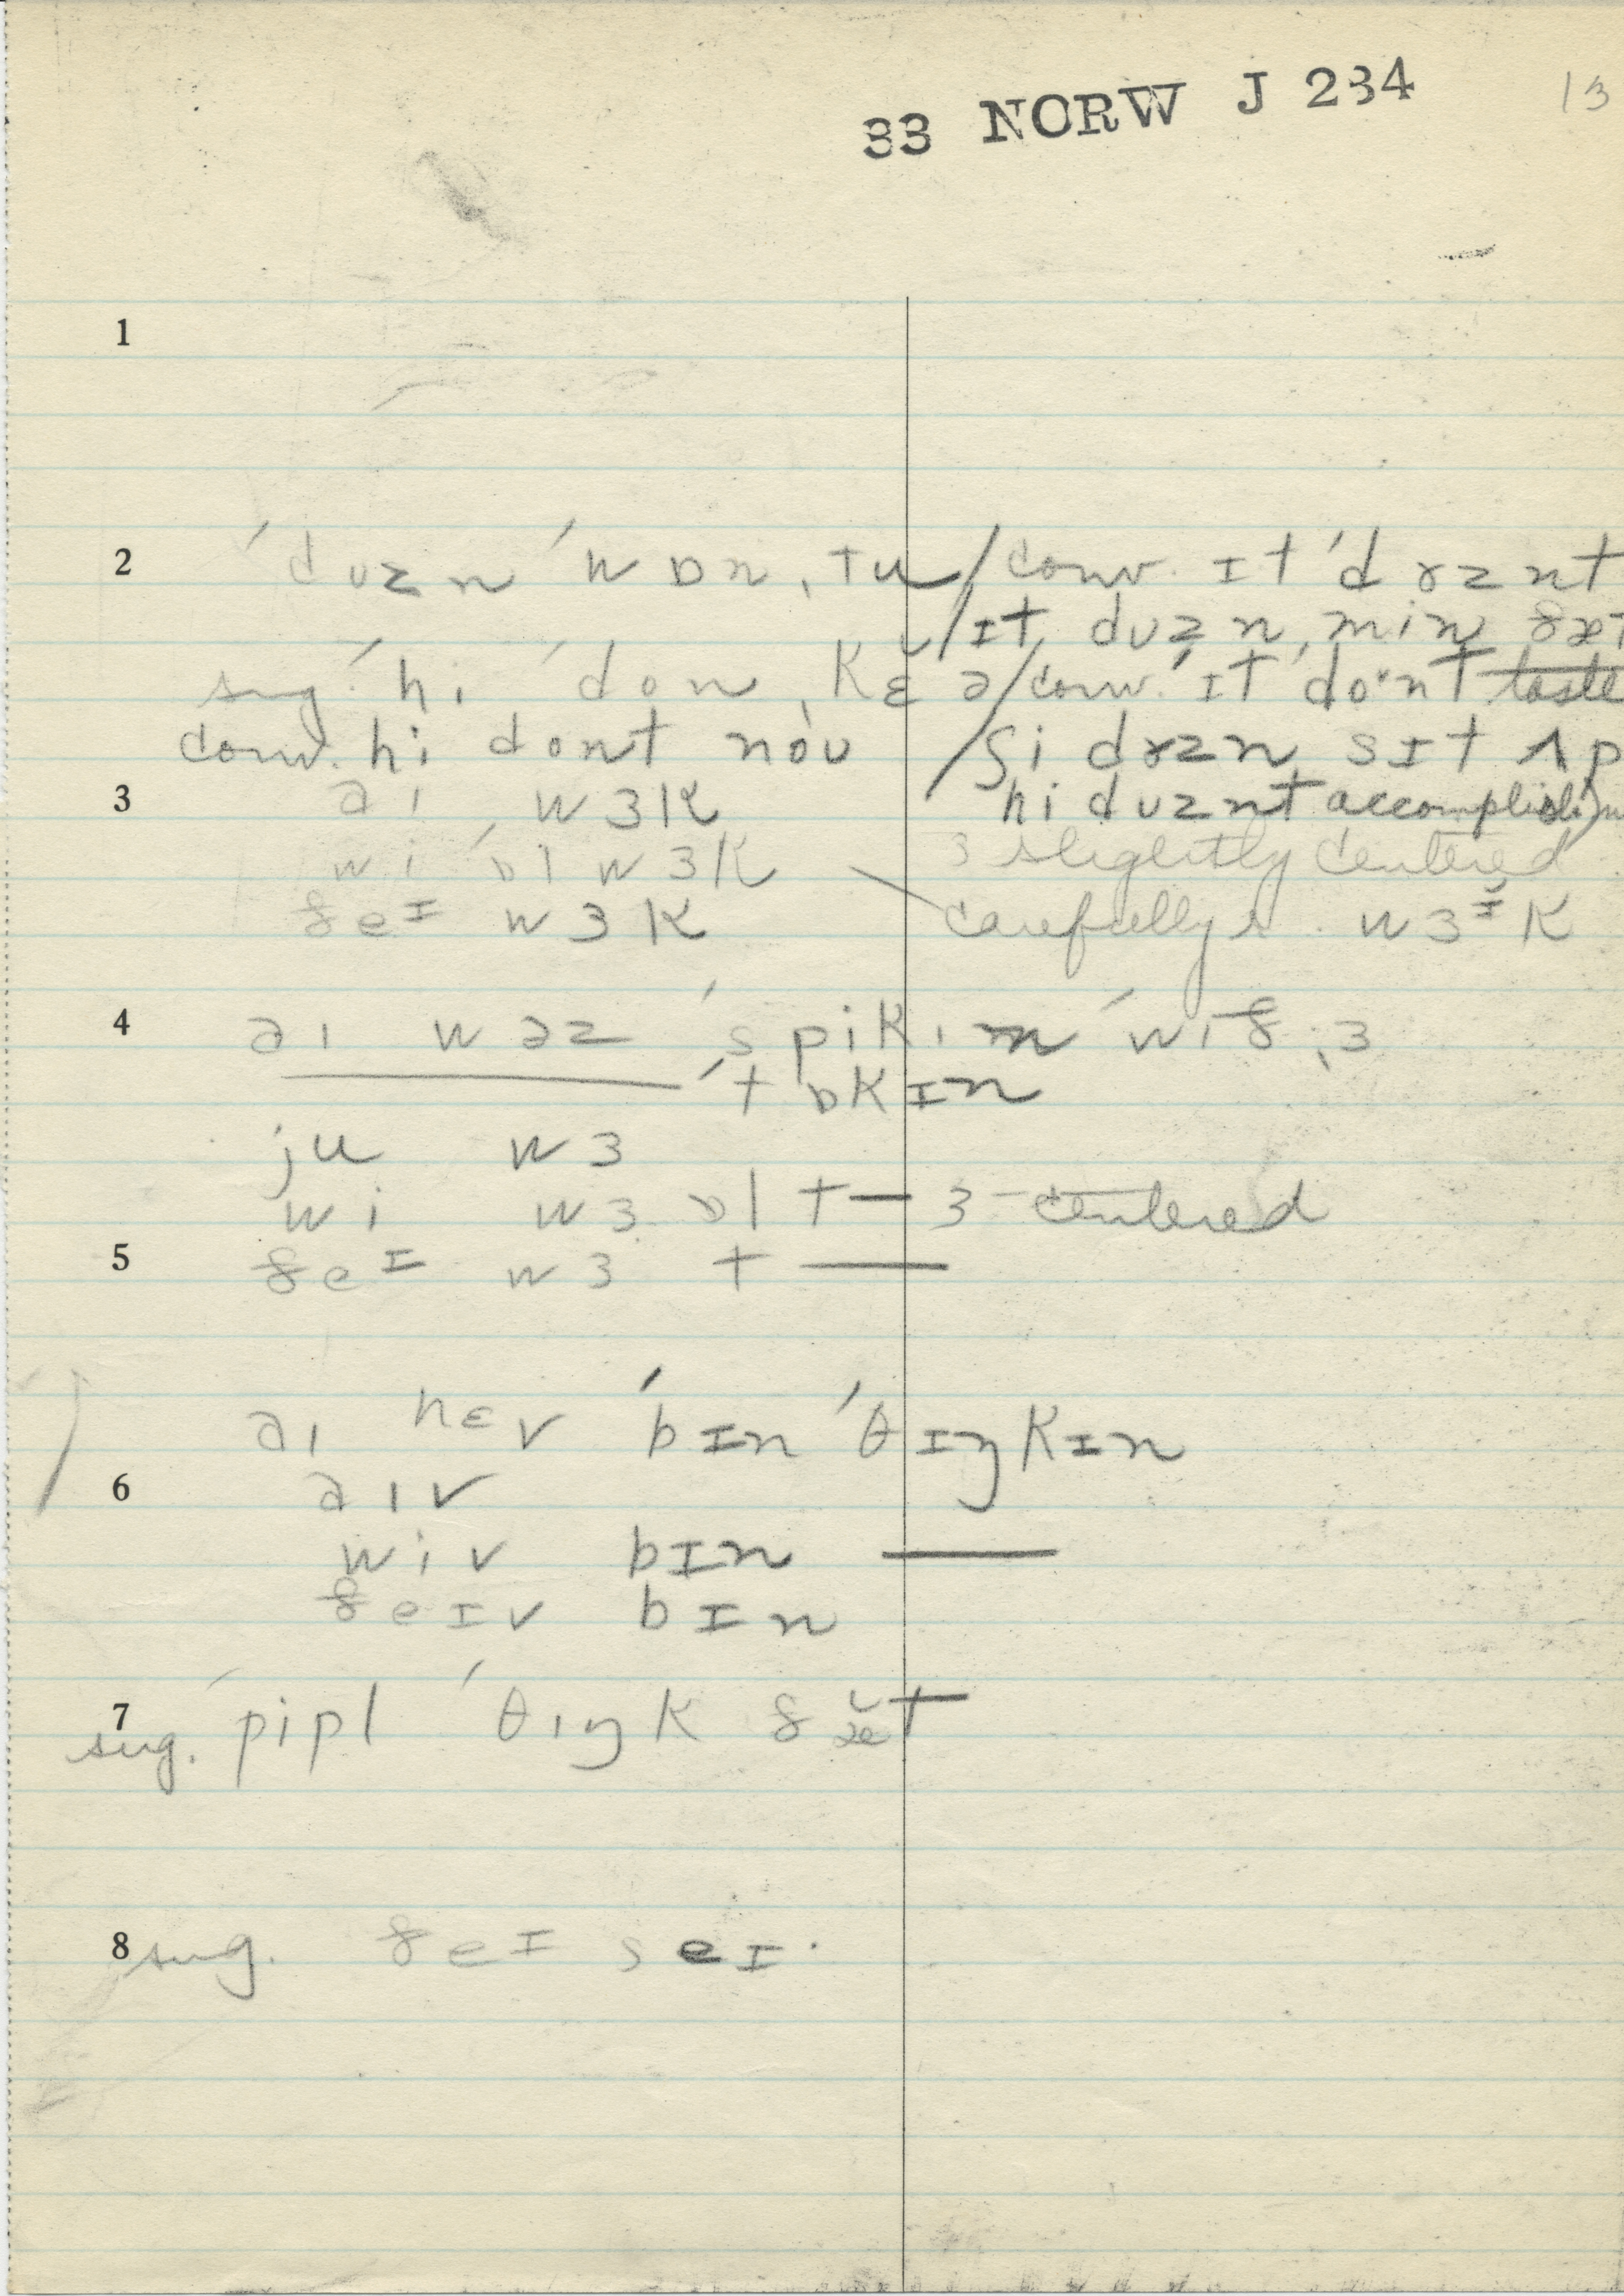 33 NORW J 234
13
1
2 ˈdʊzn ˈwɒn ˌtu / conv. ɪt ˈdɤznt
/ ɪt dʊzn ˌmin ðæt
sug. ˈhi ˈdon ˌkɛ̆ə / conv. ˈɪt ˈdoˑnt taste
conv. hi dont nòu / ʃi dɤzn sɪt ʌp
3 aɪ wɜk hi dʊznt accomplish
wi ˈɒl wɜk ɜ slightly centered
ðeɪ wɜk carefully r. wɜɪ̆k
4 aɪ wəz ˈspikɪn ˈwɪð ˌɜ
ˈtɒkɪn
ju wɜ
wi wɜ ɒl t— ɜ - centered
5 ðeɪ wɜ t—
aɪ hɛv ˈbɪn ˈθɪŋkɪn
6 aɪv
wiv bɪn —
ðeɪv bɪn
7 sug. ˈpipl ˈθɪŋk ðæ̆t
8 sug. ðeɪ seɪ·